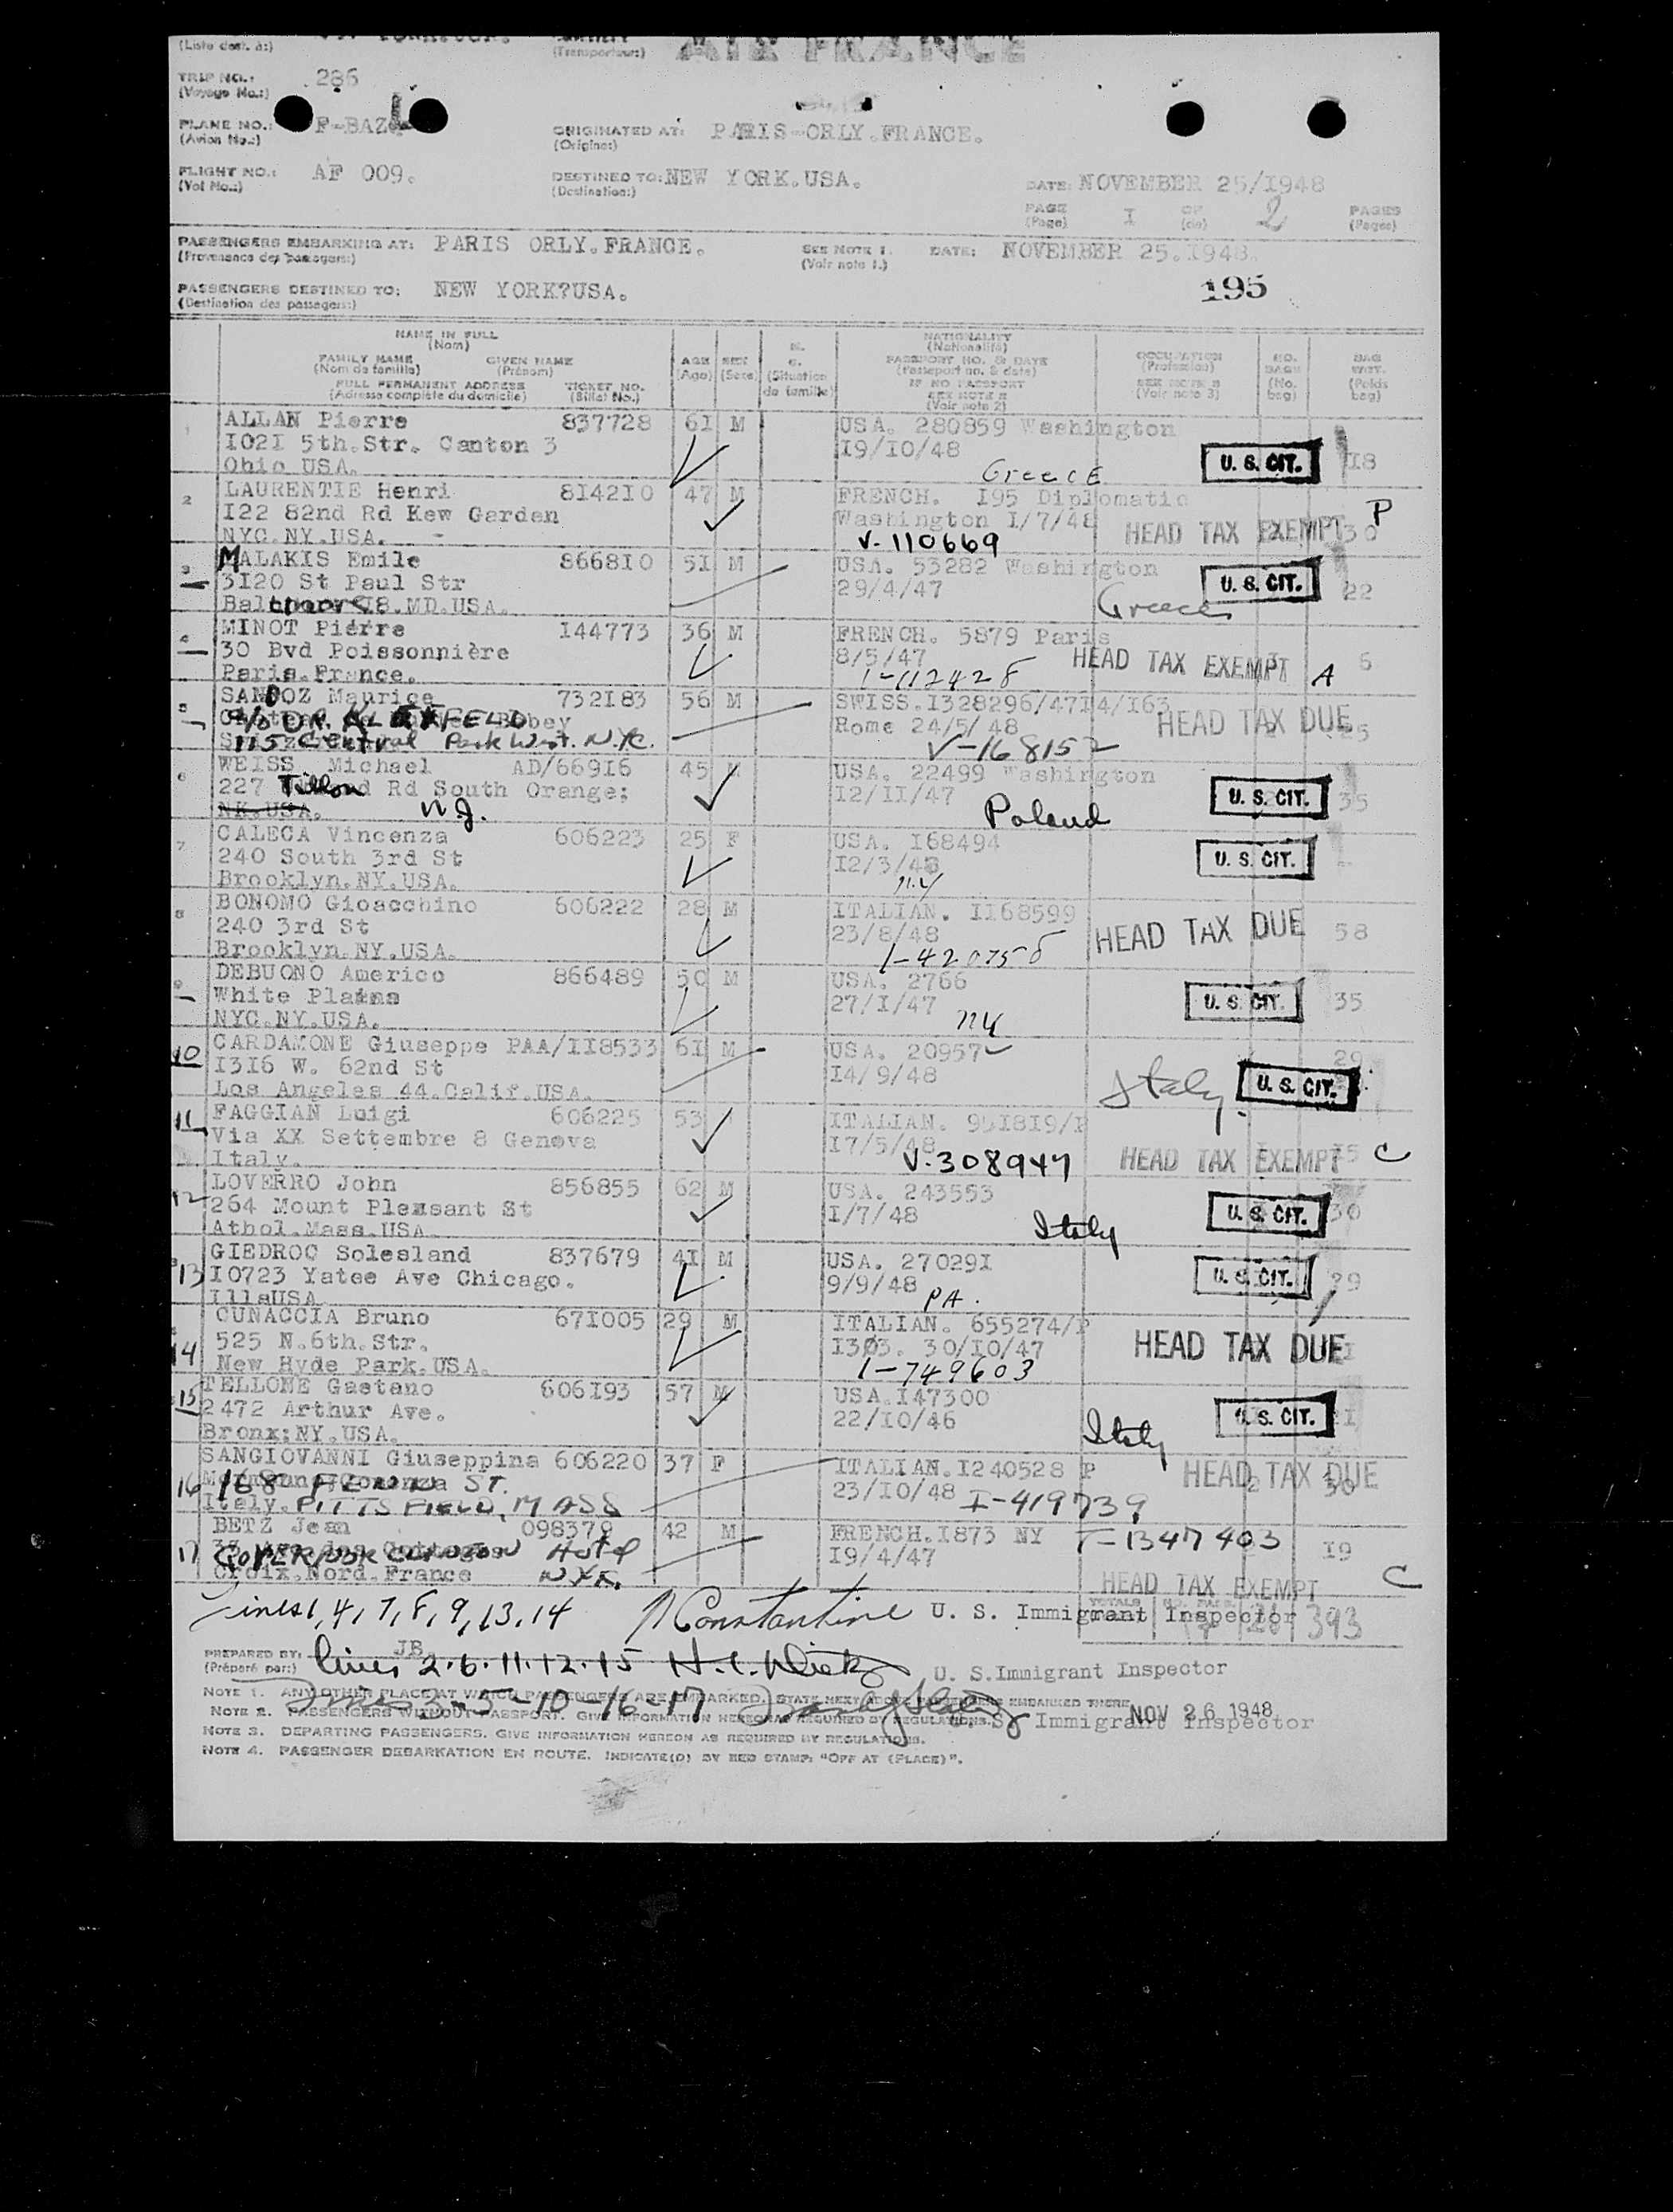 (Liste dest. à:) (Transporteur:) AIR FRANCE
TRIP NO.: 286
(Voyage No.:)
PLANE NO.: F-BAZ ORIGINATED AT: PARIS-ORLY.FRANCE.
(Avion No.:) (Origine:)
FLIGHT NO.: AF 009. DESTINED TO: NEW YORK.USA. DATE: NOVEMBER 25/1948
(Vol No.:) (Destination:)
PAGE I OF 2 PAGES
(Page) (de) (Pages)
PASSENGERS EMBARKING AT: PARIS ORLY.FRANCE. SEE NOTE 1. DATE: NOVEMBER 25.1948.
(Provenance des passagers:) (Voir note 1.)
PASSENGERS DESTINED TO: NEW YORK?USA. 195
(Destination des passagers:)
NAME IN FULL
(Nom)
FAMILY NAME GIVEN NAME
(Nom de famille) (Prénom)
FULL PERMANENT ADDRESS TICKET NO.
(Adresse complète du domicile) (Billet No.)
AGE SEX
(Age) (Sexe)
(Situation
de famille)
NATIONALITY
(Nationalité)
PASSPORT NO. & DATE
(Passeport no. & date)
IF NO PASSPORT
SEE NOTE 2
(Voir note 2)
OCCUPATION
(Profession)
SEE NOTE 3
(Voir note 3)
NO.
BAGS
(No.
bag)
BAG
WGT.
(Poids
bag)
1 ALLAN Pierre 837728 61 M USA. 280859 Washington
1021 5th.Str. Canton 3 19/10/48 U. S. CIT. 18
Ohio USA. Greece
2 LAURENTIE Henri 814210 47 M FRENCH. 195 Diplomatic
122 82nd Rd Kew Garden Washington 1/7/48 HEAD TAX EXEMPT 30 P
NYC.NY.USA. V-110669
3 MALAKIS Emile 866810 51 M USA. 53282 Washington
3120 St Paul Str 29/4/47 U. S. CIT. 22
Baltimore 18.MD.USA. Greece
4 MINOT Pierre 144773 36 M FRENCH. 5879 Paris
30 Bvd Poissonnière 8/5/47 HEAD TAX EXEMPT 6
Paris.France. 1-112428 A
5 SANDOZ Maurice 732183 56 M SWISS.1328296/4714/163
c/o DR. KLEEFELD Rome 24/5/48 HEAD TAX DUE
115 Central Park West. N.Y.C. V-168152
6 WEISS Michael AD/66916 45 M USA. 22499 Washington
227 Rd South Orange; 12/11/47 U. S. CIT. 35
NK.USA. N.J. Poland
7 CALECA Vincenza 606223 25 F USA. 168494
240 South 3rd St 12/3/48 U. S. CIT.
Brooklyn.NY.USA. N.Y
8 BONOMO Gioacchino 606222 28 M ITALIAN. 1168599
240 3rd St 23/8/48 HEAD TAX DUE 58
Brooklyn.NY.USA. 1-420758
9 DEBUONO Americo 866489 50 M USA. 2766
White Plains 27/1/47 U. S. CIT. 35
NYC.NY.USA. NY
10 CARDAMONE Giuseppe PAA/118533 61 M USA. 20957 29
1316 W. 62nd St 14/9/48 U. S. CIT.
Los Angeles 44.Calif.USA. Italy.
11 FAGGIAN Luigi 606225 53 ITALIAN. 951819/P
Via XX Settembre 8 Genova 17/5/48 HEAD TAX EXEMPT C
Italy. V-308947
12 LOVERRO John 856855 62 M USA. 243553
264 Mount Pleasant St 1/7/48 U. S. CIT. 30
Athol.Mass.USA. Italy
13 GIEDROC Solesland 837679 41 M USA. 270291
10723 Yatee Ave Chicago. 9/9/48 U. S. CIT. 29
IllsUSA PA.
14 CUNACCIA Bruno 671005 29 M ITALIAN. 655274/P
525 N.6th.Str. 1303. 30/10/47 HEAD TAX DUE
New Hyde Park.USA. 1-749603
15 TELLONE Gaetano 606193 57 M USA.147300
2472 Arthur Ave. 22/10/46 U. S. CIT.
Bronx:NY.USA. Italy
16 SANGIOVANNI Giuseppina 606220 37 F ITALIAN.1240528 P HEAD TAX DUE
168 ST. 23/10/48 I-419739
Italy. PITTSFIELD, MASS
17 BETZ Jean 098379 42 M FRENCH.1873 NY T-1347403
GOVERNOR CLINTON Hotel 19/4/47 19
Croix.Nord.France NYK. HEAD TAX EXEMPT C
Lines 1, 4, 7, 8, 9, 13, 14 Constantine U. S. Immigrant Inspector TOTALS 393
PREPARED BY: JB
(Préparé par:) lines 2.6.11.12.15 U. S.Immigrant Inspector
NOTE 1. ANY OTHER PLACE AT WHICH PASSENGERS ARE EMBARKED. STATE NEXT ABOVE PASSENGERS EMBARKED THERE
Lines 3-5-10-16-17
NOTE 2. PASSENGERS WITHOUT PASSPORT. GIVE INFORMATION HEREON AS REQUIRED BY REGULATIONS. Immigrant Inspector NOV 26 1948
NOTE 3. DEPARTING PASSENGERS. GIVE INFORMATION HEREON AS REQUIRED BY REGULATIONS.
NOTE 4. PASSENGER DEBARKATION EN ROUTE. INDICATE(D) BY RED STAMP: "OFF AT (PLACE)".